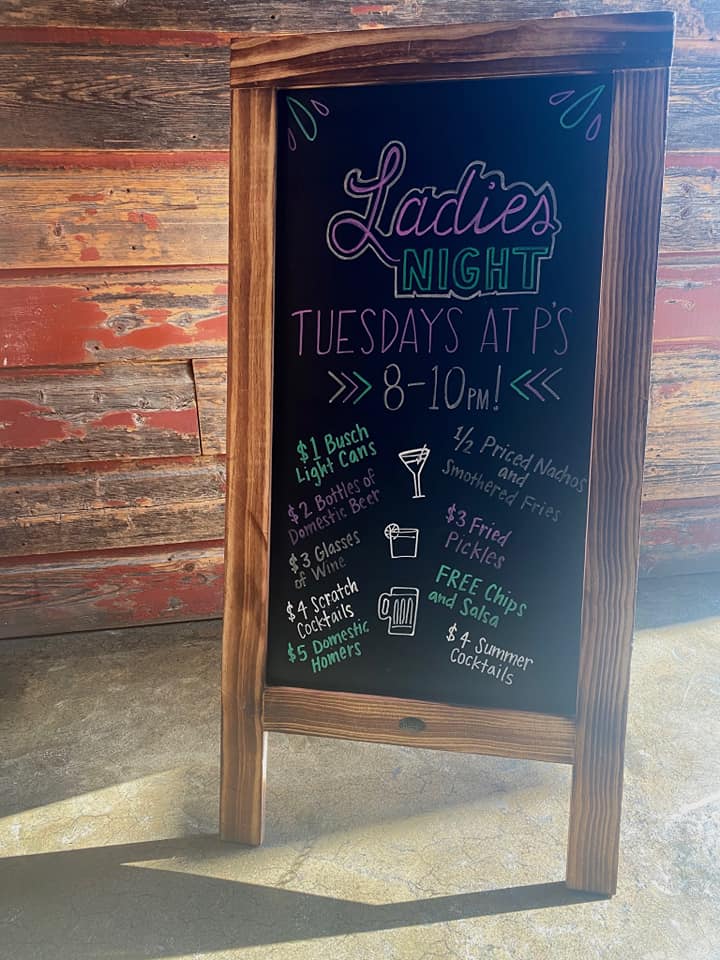 Ladies
NIGHT
TUESDAYS AT P'S
8-10PM!
$1 Busch
Light Cans
$2 Bottles of
Domestic Beer
$3 Glasses
of Wine
$4 Scratch
Cocktails
$5 Domestic
Homers
1/2 Priced Nachos
and
Smothered Fries
$3 Fried
Pickles
FREE Chips
and Salsa
$4 Summer
Cocktails